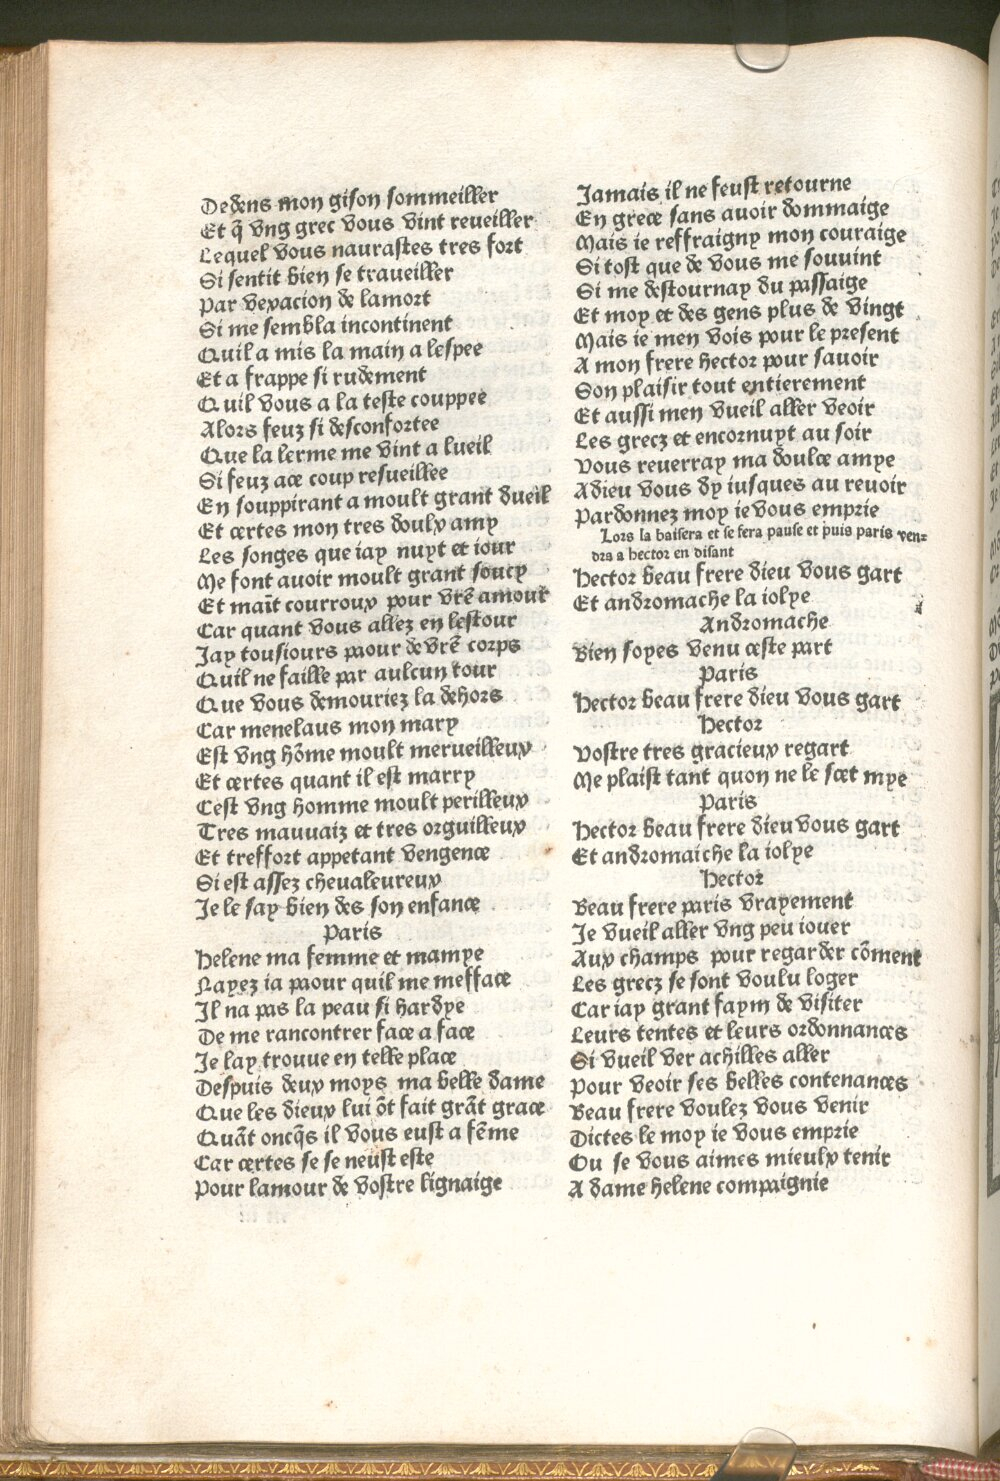 Dedens mon gison sommeiller
Et q̃ vng grec vous vint reueiller
Lequel vous naurastes tres fort
Si sentit bien se traueiller
Par vexacion de lamort
Si me sembla incontinent
Quil a mis la main a lespee
Et a frappe si rudement
Quil vous a la teste couppee
Alors feuz si desconfortee
Que la lerme me vint a lueil
Si feuz ace coup resueillee
En souppirant a moult grant dueil
Et certes mon tres doulx amy
Les songes que iay nuyt et iour
Me font auoir moult grant soucy
Et mait̃ courroux pour vr̃e amour
Car quant vous allez en lestour
Jay tousiours paour de vr̃e corps
Quil ne faille par aulcun tour
Que vous demouriez la dehors
Car menelaus mon mary
Est vng hõme moult merueilleux
Et certes quant il est marry
Cest vng homme moult perilleux
Tres mauuaiz et tres orguilleux
Et treffort appetant vengence
Si est assez cheualeureux
Je le say bien des son enfance
Paris
Helene ma femme et mamye
Nayez ia paour quil me mefface
Il na pas la peau si hardye
De me rancontrer face a face
Je lay trouue en telle place
Despuis deux moys ma belle dame
Que les dieux lui õt fait grãt grace
Quãt oncq̃s il vous eust a fẽme
Car certes se se neust este
Pour lamour de vostre lignaige
Jamais il ne feust retourne
En grece sans auoir dommaige
Mais ie reffraigny mon couraige
Si tost que de vous me souuint
Si me destournay du passaige
Et moy et des gens plus de vingt
Mais ie men vois pour le present
A mon frere hector pour sauoir
Son plaisir tout entierement
Et aussi men vueil aller veoir
Les grecz et encornuyt au soir
Vous reuerray ma doulce amye
Adieu vous dy iusques au reuoir
Pardonnez moy ie vous emprie
Lors la baisera et se fera pause et puis paris ven-
dra a hector en disant
Hector beau frere dieu vous gart
Et andromache la iolye
Andromache
Bien soyes venu ceste part
Paris
Hector beau frere dieu vous gart
Hector
Vostre tres gracieux regart
Me plaist tant quon ne le scet mye
Paris
Hector beau frere dieu vous gart
Et andromaiche la iolye
Hector
Beau frere paris vrayement
Je vueil aller vng peu iouer
Aux champs pour regarder cõment
Les grecz se sont voulu loger
Car iay grant faym de visiter
Leurs tentes et leurs ordonnances
Si vueil ver achilles aller
Pour veoir ses belles contenances
Beau frere voulez vous venir
Dictes le moy ie vous emprie
Ou se vous aimes mieulx tenir
A dame helene compaignie